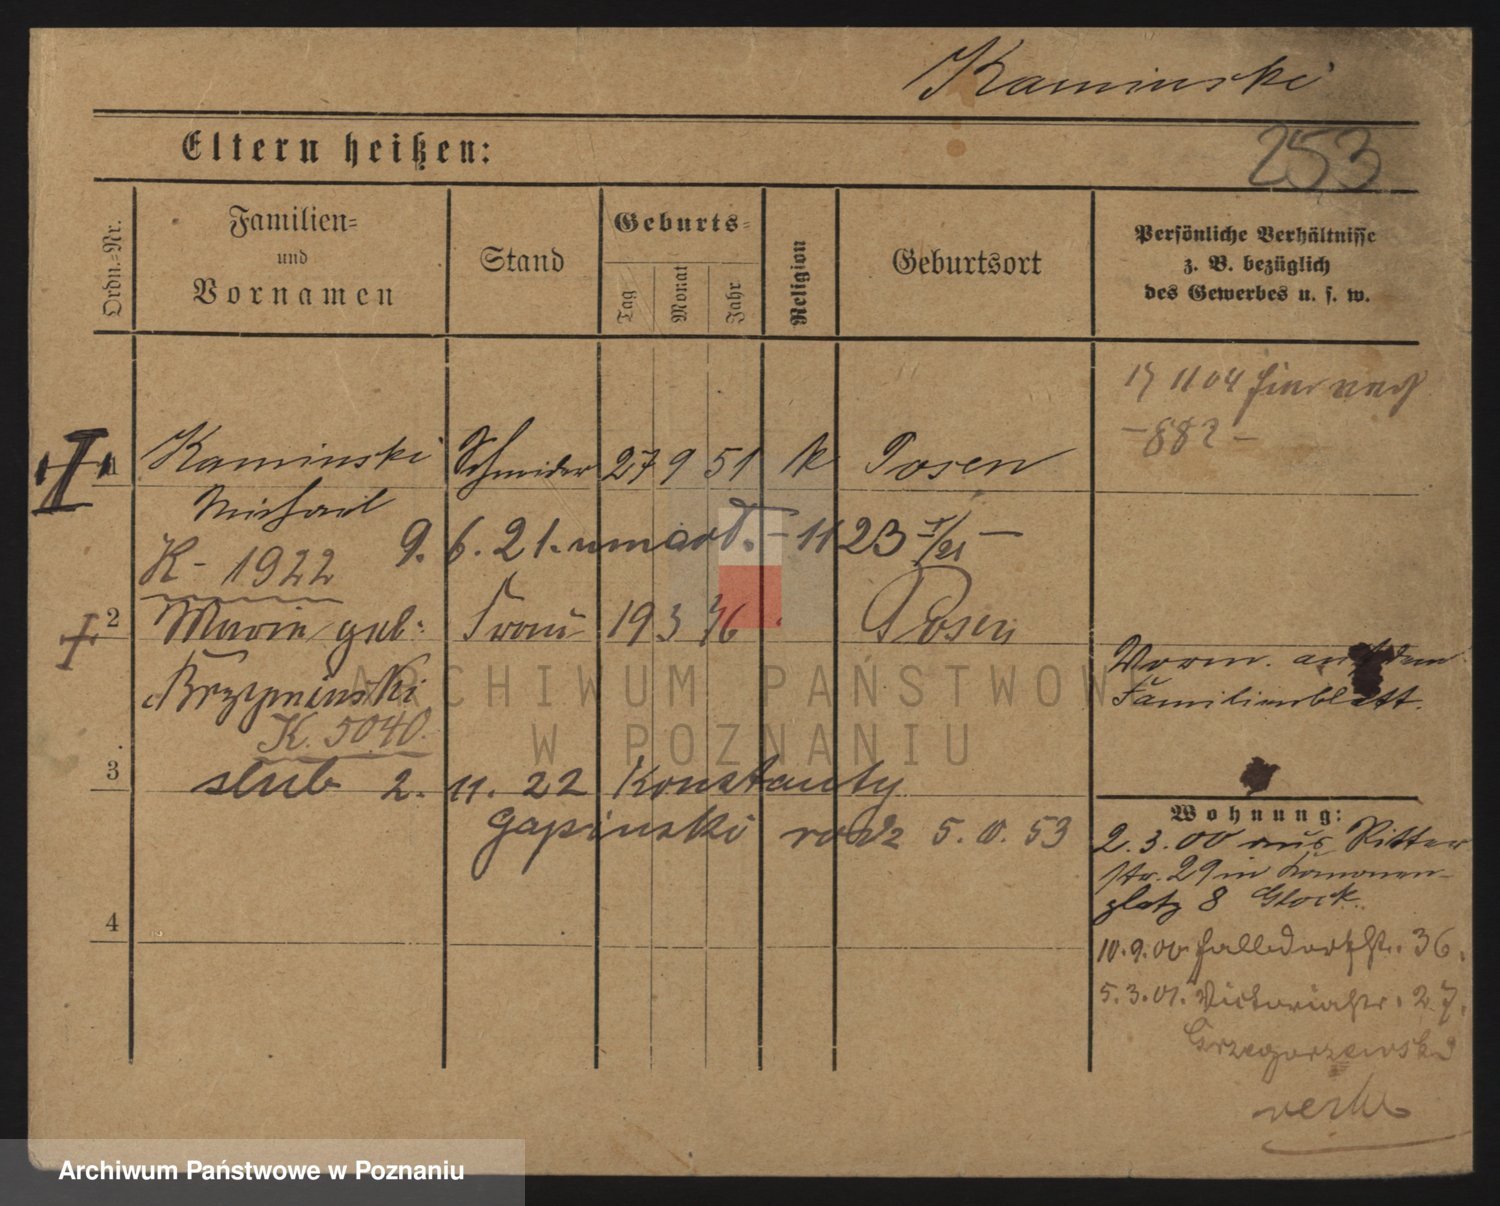 Kaminski
253
Eltern heißen:
Ordn.=Nr.
Familien=
und
Vornamen
Stand
Geburts=
Tag
Monat
Jahr
Religion
Geburtsort
Persönliche Verhältnisse
z. B. bezüglich
des Gewerbes u. s. w.
1 Kaminski Schneider 27 9 51 k Posen
Michael
9. 6. 21.
K- 1922
-882-
2 Marie geb: Frau 19 3 Posen
Brzyminski
K. 5040.
Verm. auf dem
Familienblatt.
3
slub 2. 11. 22 Konstanty
Gapinski rodz 5. 53
Wohnung:
2.3.00 aus Ritter
str. 29 in Kanonen-
platz 8 Glock.
4
10.9.00 36.
5.3.01. Victoriastr. 27.
Grzegorzewski
ARCHIWUM PAŃSTWOWE
W POZNANIU
Archiwum Państwowe w Poznaniu